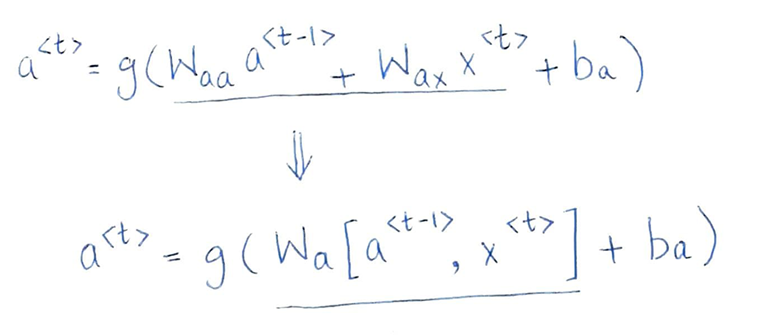 a^<t> = g(W_aa a^<t-1> + W_ax x^<t> + b_a)
⇓
a^<t> = g(W_a[a^<t-1>, x^<t>] + b_a)